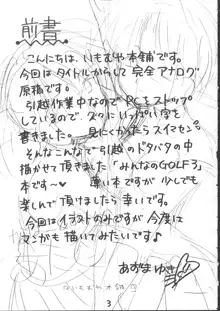 前書
こんにちは、いもむや本舗です。
今回はタイトルからして完全アナログ
原稿です。
引越作業中なのでPCをストップ
しているので、久々にいっぱい字を
書きました。見にくかったらスイマセン
そんなこんなで引越のドタバタの中
描かせて頂きました「みんなのGOLF3」
本です〜♡ 薄い本ですが少しでも
楽しんで頂けましたら幸いです。
今回はイラストのみですが今度は
マンガも描いてみたいです♪
あずまゆき
3